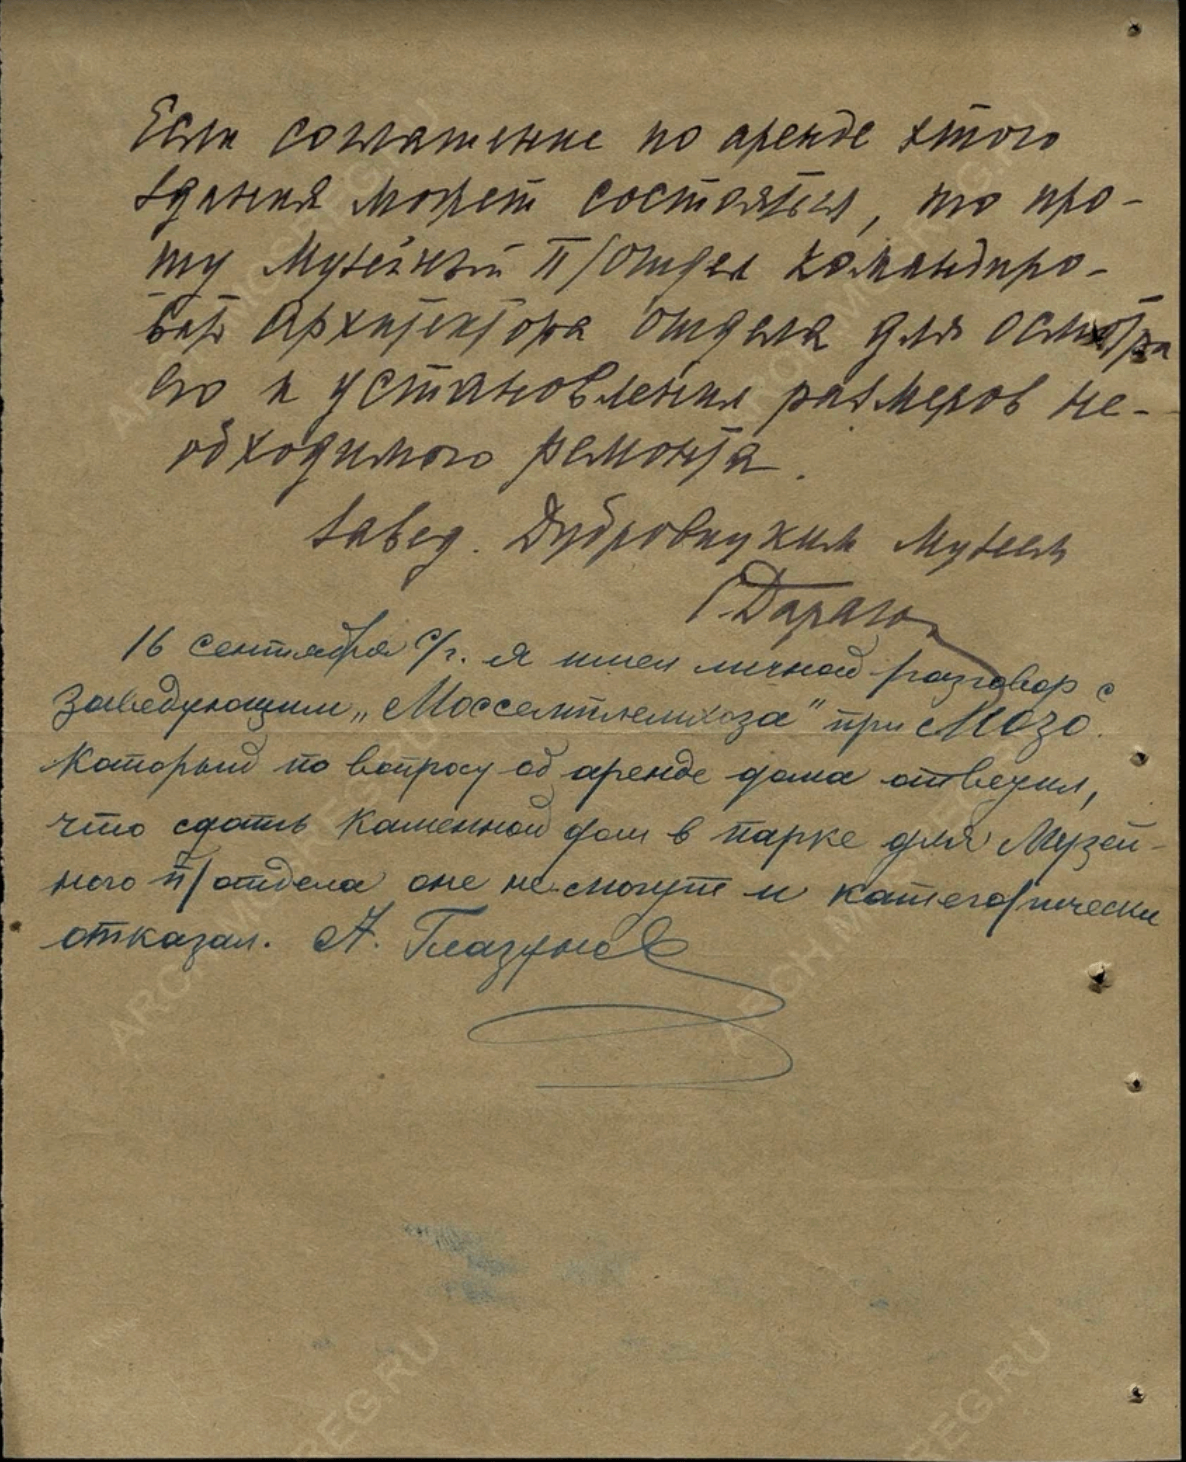 Если соглашение по аренде этого
здания может состояться, то про-
шу Музейный П/Отдел командиро-
вать Архитектора Отдела для осмотра
его и установления размеров не-
обходимого ремонта.
Завед. Дубровицким Музеем
Г. Дараган
16 сентября с/г. я имел личной разговор с
Заведующим „Моссемплемхоза" при МОЗО.
Который по вопросу об аренде дома ответил,
что сдать каменной дом в парке для Музей-
ного п/отдела оне не смогут и категорически
отказал. А. Глазунов
ARCH.MOREG.RU